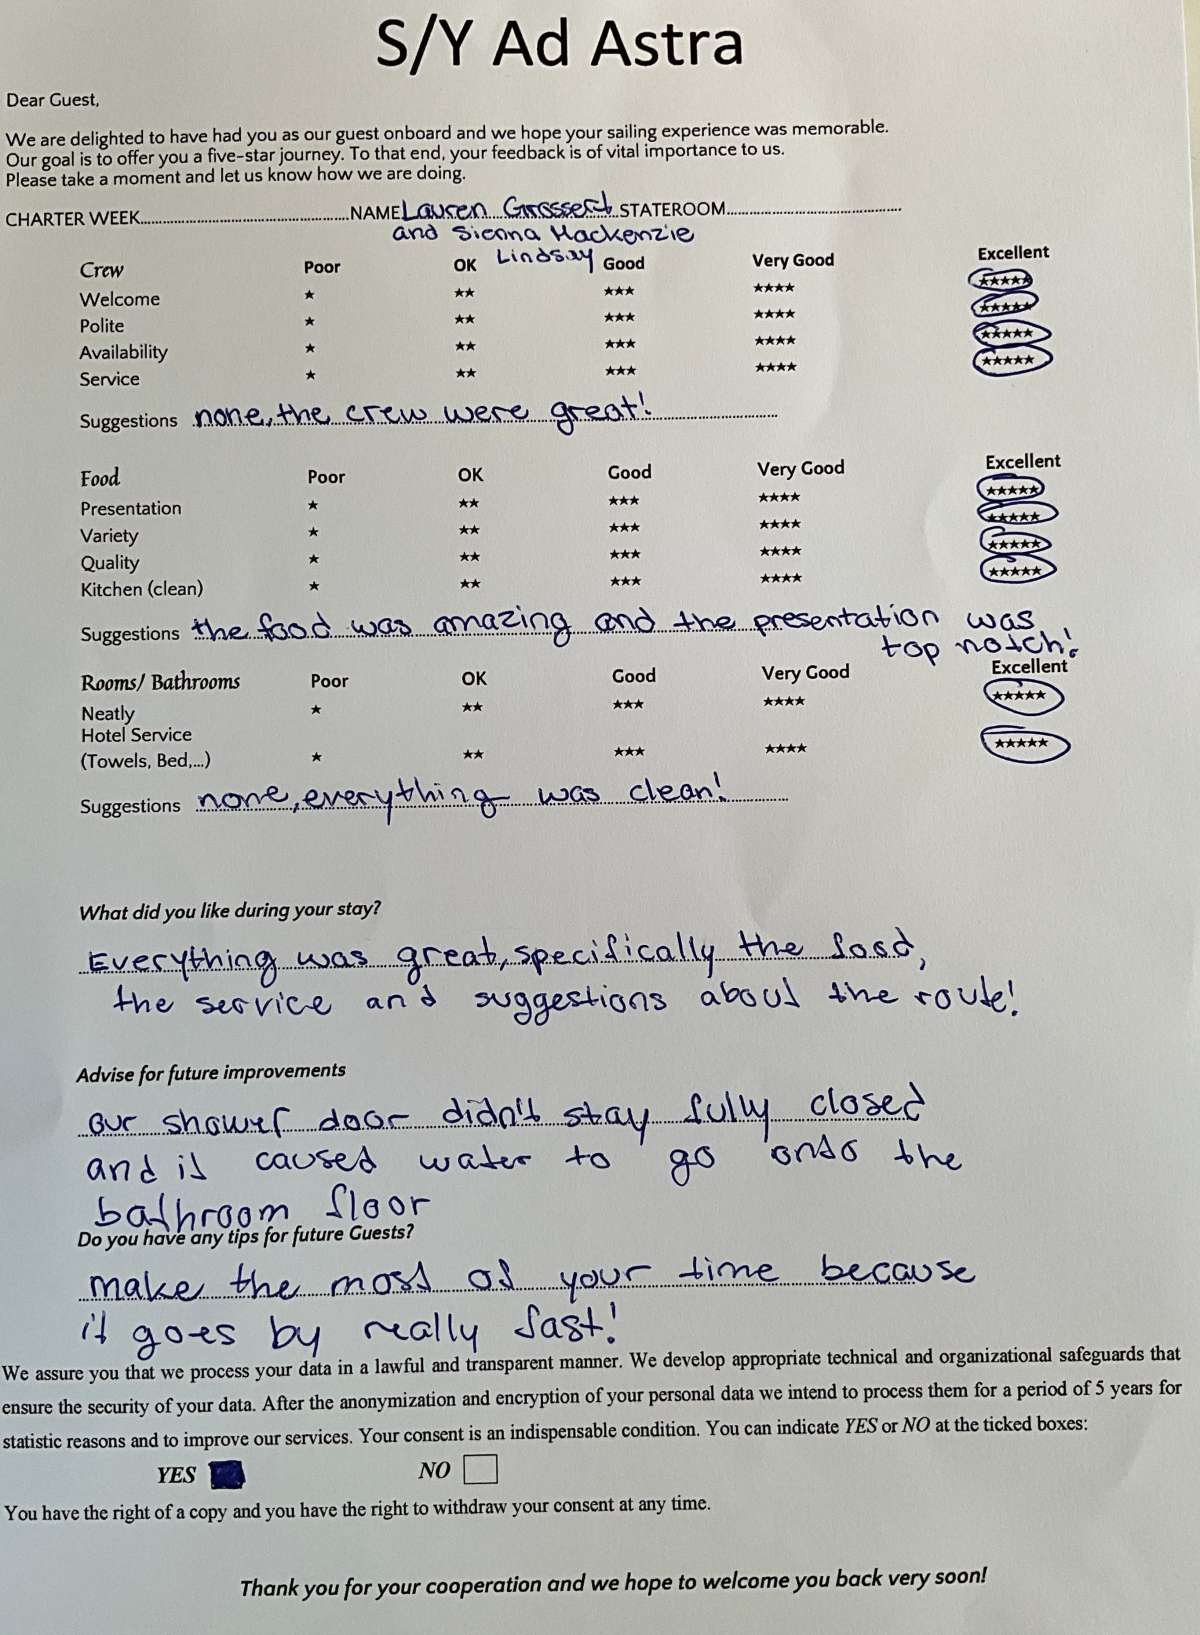 S/Y Ad Astra
Dear Guest,
We are delighted to have had you as our guest onboard and we hope your sailing experience was memorable.
Our goal is to offer you a five-star journey. To that end, your feedback is of vital importance to us.
Please take a moment and let us know how we are doing.
CHARTER WEEK..............................NAME Lauren Grossert STATEROOM..............................
and Sienna Mackenzie
Lindsay
Crew Poor OK Good Very Good Excellent
Welcome ★ ★★ ★★★ ★★★★ ★★★★★
Polite ★ ★★ ★★★ ★★★★ ★★★★★
Availability ★ ★★ ★★★ ★★★★ ★★★★★
Service ★ ★★ ★★★ ★★★★ ★★★★★
Suggestions none, the crew were great!
Food Poor OK Good Very Good Excellent
Presentation ★ ★★ ★★★ ★★★★ ★★★★★
Variety ★ ★★ ★★★ ★★★★ ★★★★★
Quality ★ ★★ ★★★ ★★★★ ★★★★★
Kitchen (clean) ★ ★★ ★★★ ★★★★ ★★★★★
Suggestions the food was amazing and the presentation was
top notch!
Rooms/ Bathrooms Poor OK Good Very Good Excellent
Neatly ★ ★★ ★★★ ★★★★ ★★★★★
Hotel Service
(Towels, Bed,...) ★ ★★ ★★★ ★★★★ ★★★★★
Suggestions none, everything was clean!
What did you like during your stay?
Everything was great, specifically the food,
the service and suggestions about the route!
Advise for future improvements
our shower door didn't stay fully closed
and it caused water to go onto the
bathroom floor
Do you have any tips for future Guests?
make the most of your time because
it goes by really fast!
We assure you that we process your data in a lawful and transparent manner. We develop appropriate technical and organizational safeguards that
ensure the security of your data. After the anonymization and encryption of your personal data we intend to process them for a period of 5 years for
statistic reasons and to improve our services. Your consent is an indispensable condition. You can indicate YES or NO at the ticked boxes:
YES NO
You have the right of a copy and you have the right to withdraw your consent at any time.
Thank you for your cooperation and we hope to welcome you back very soon!